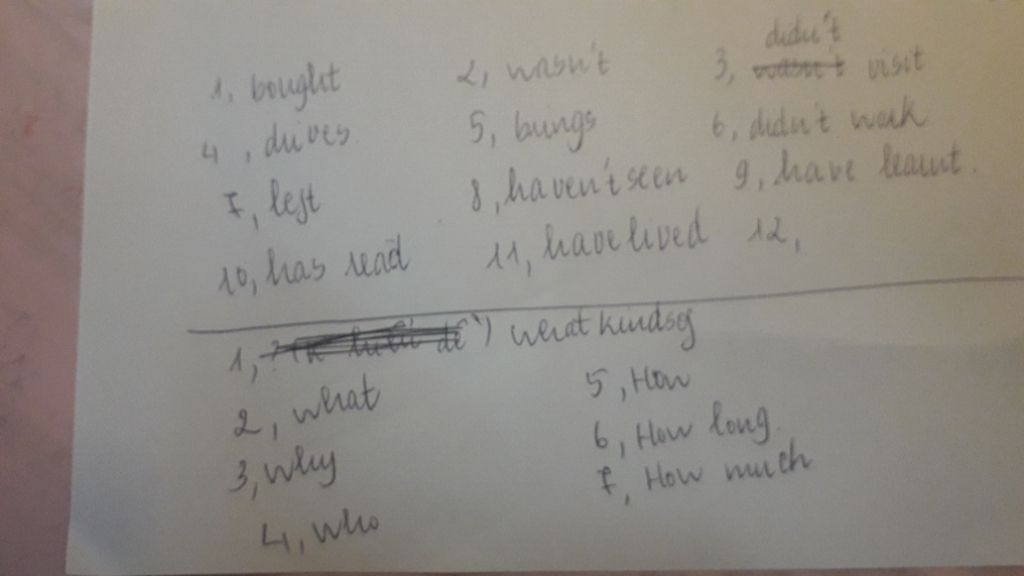 1, bought 2, wasn't 3, didn't visit
4, drives 5, brings 6, didn't work
7, left 8, haven't seen 9, have learnt.
10, has read 11, have lived 12,
1, what kinds of
2, what 5, How
3, why 6, How long
4, who 7, How much